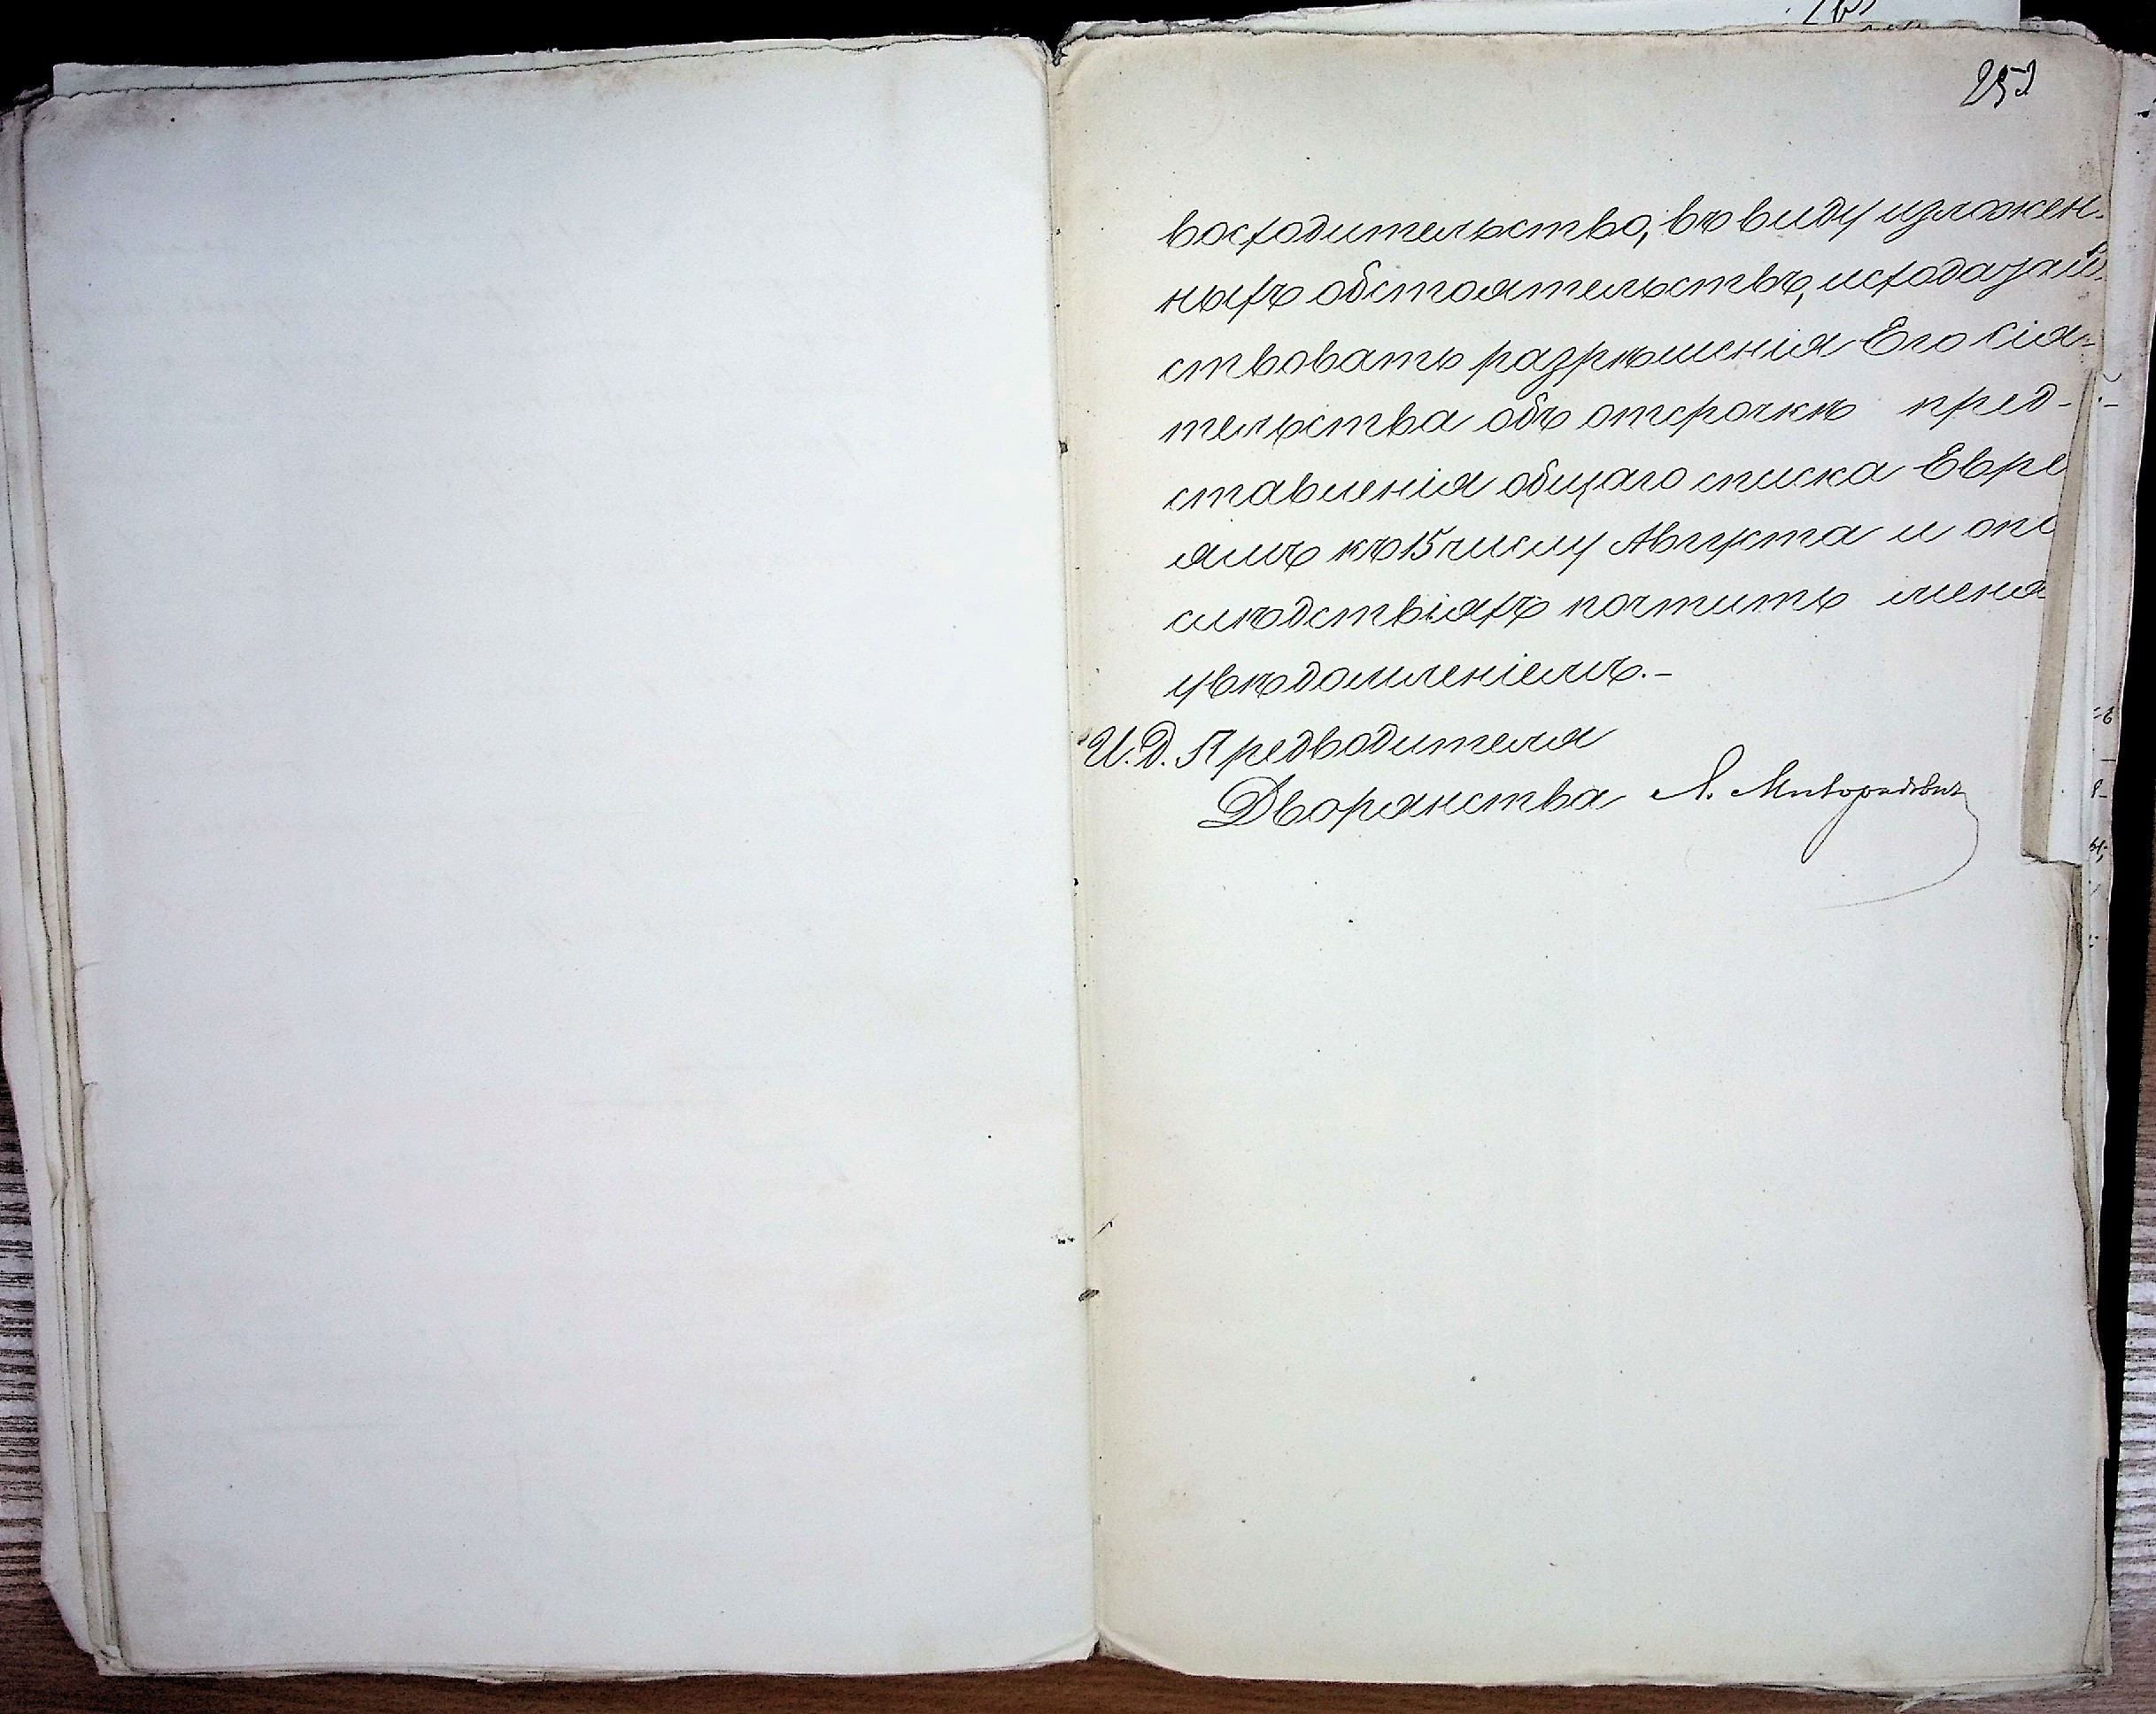 252
восходительство, въ виду изложен-
ныхъ обстоятельствъ, исходатай-
ствовать разрѣшенія Его Сія-
тельства объ отсрочкѣ пред-
ставленія общаго списка Евре
ямъ къ 15 числу Августа и опо
слѣдствіяхъ почтить меня
увѣдомленіемъ.-
И. Д. Предводителя
Дворянства А. Милорадович